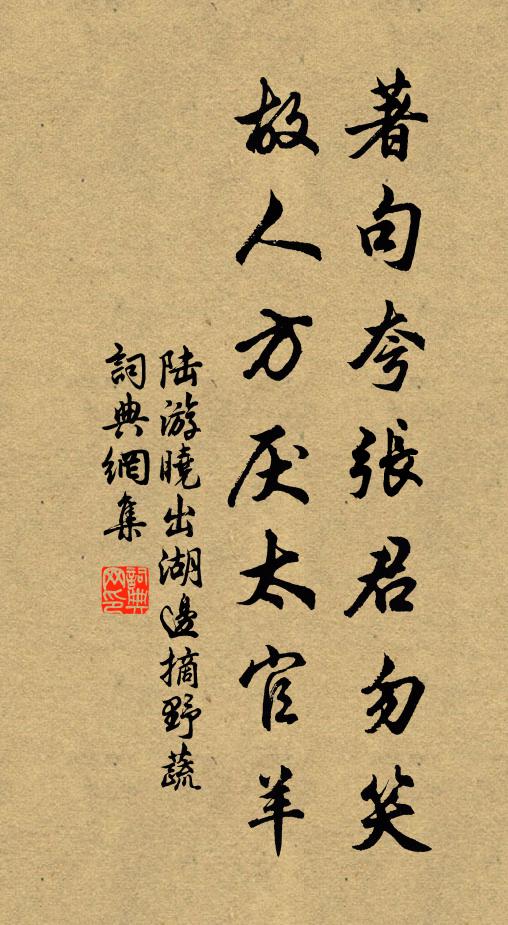 著句夸張君勿笑
故人方厌太官羊
陆游曉出湖邊摘野蔬
詞典網集
詞典网印